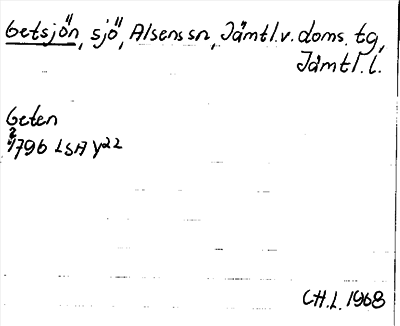 Getsjön, sjö, Alsens sn, Jämtl.v.doms.tg,
Jämtl.l.
Geten
1796 LSA Y22
C.H.L. 1968